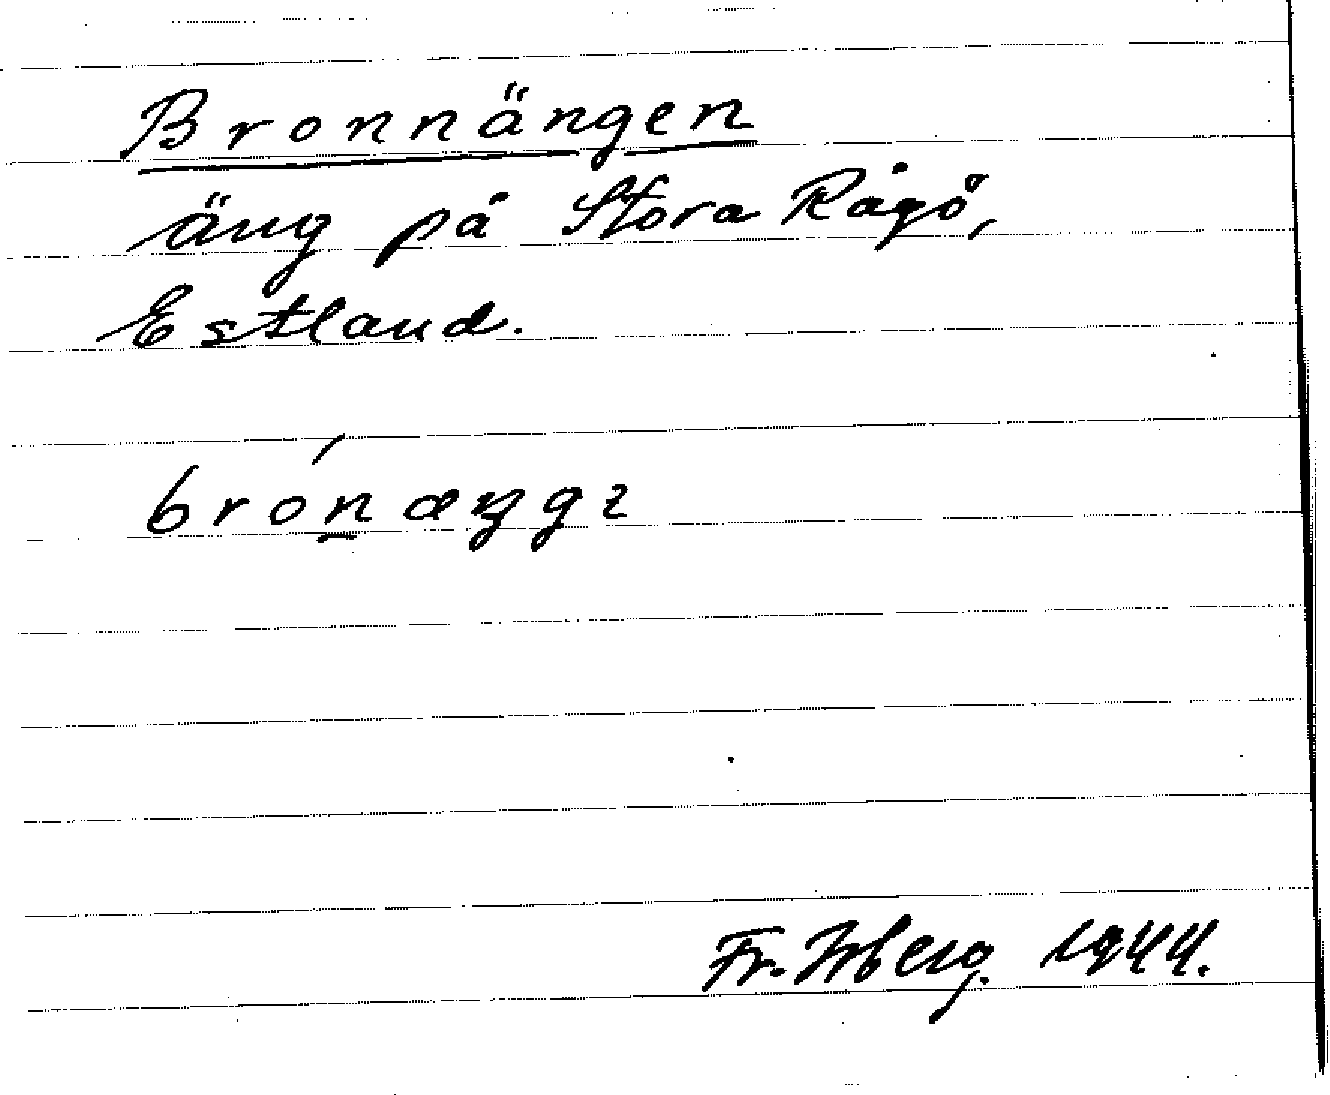 Bronnängen
äng på Stora Rågö,
Estland.
brón̲æŋgɩ
Fr. 1944.